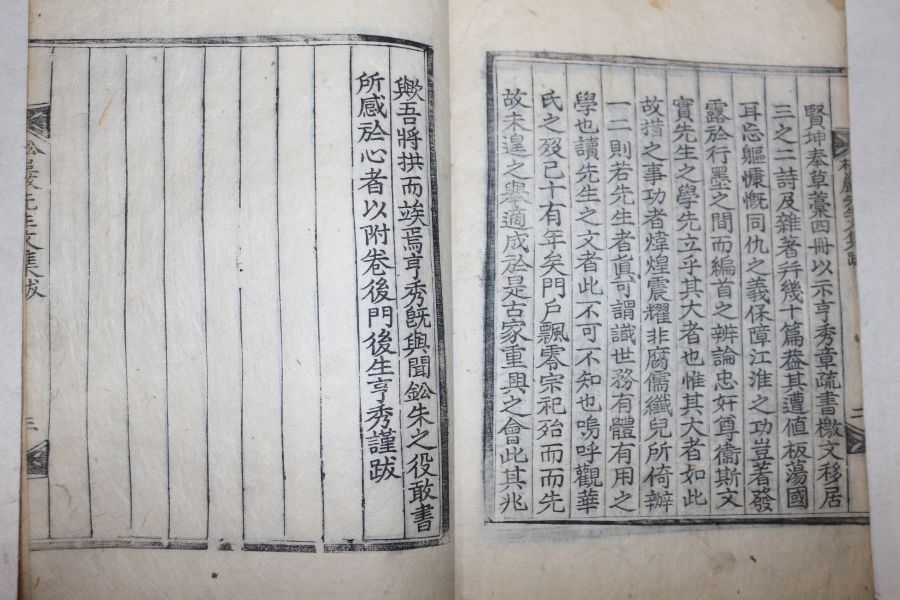 賢坤奉草藁四冊以示亨秀章疏書檄文移居
三之二詩及雜著幷幾十篇葢其遭値板蕩國
耳忘軀慷慨同仇之義保障江淮之功豈著發
露於行墨之間而編首之辨論忠奸尊衞斯文
實先生之學先立乎其大者也惟其大者如此
故措之事功者煒煌震耀非腐儒纖兒所倚辦
一二則若先生者眞可謂識世務有體有用之
學也讀先生之文者此不可不知也嗚呼觀華
氏之歿已十有年矣門戶飄零宗祀殆而而先
故未遑之舉適成於是古家重興之會此其兆
歟吾將拱而竢焉亨秀旣與聞鈆朱之役敢書
所感於心者以附卷後門後生亨秀謹跋
先生文集跋
三
二